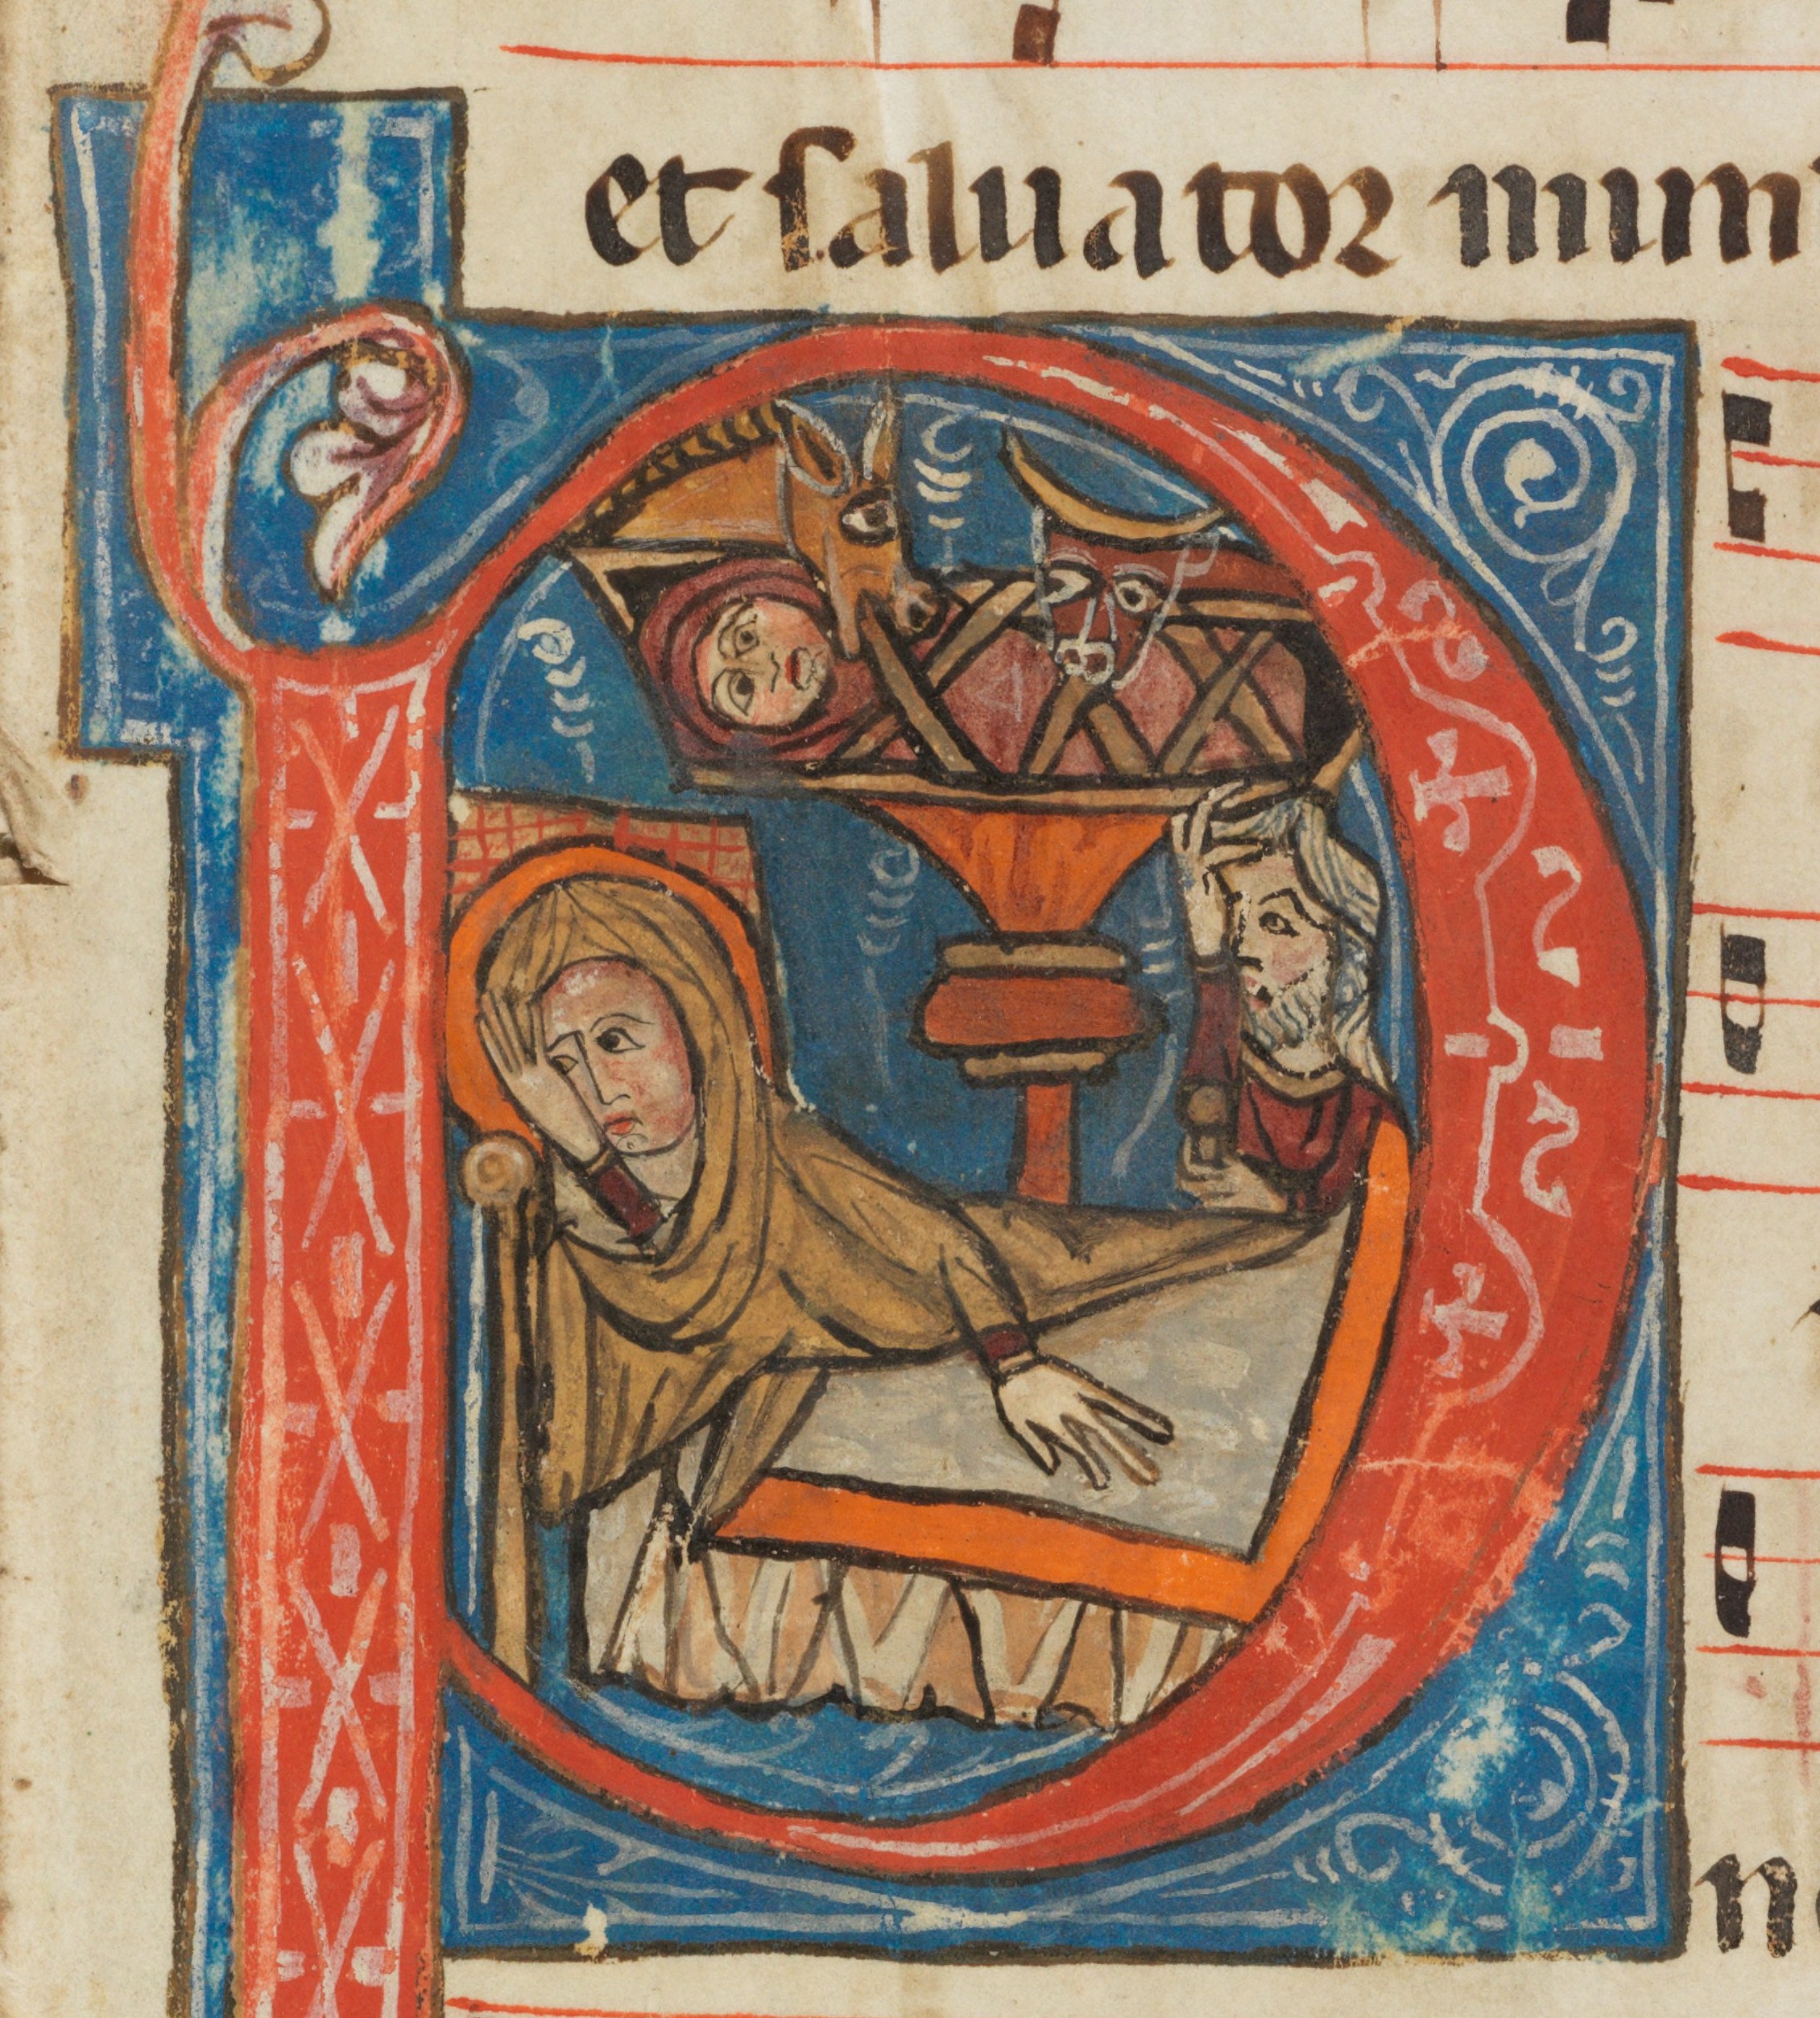 et saluator mun
n